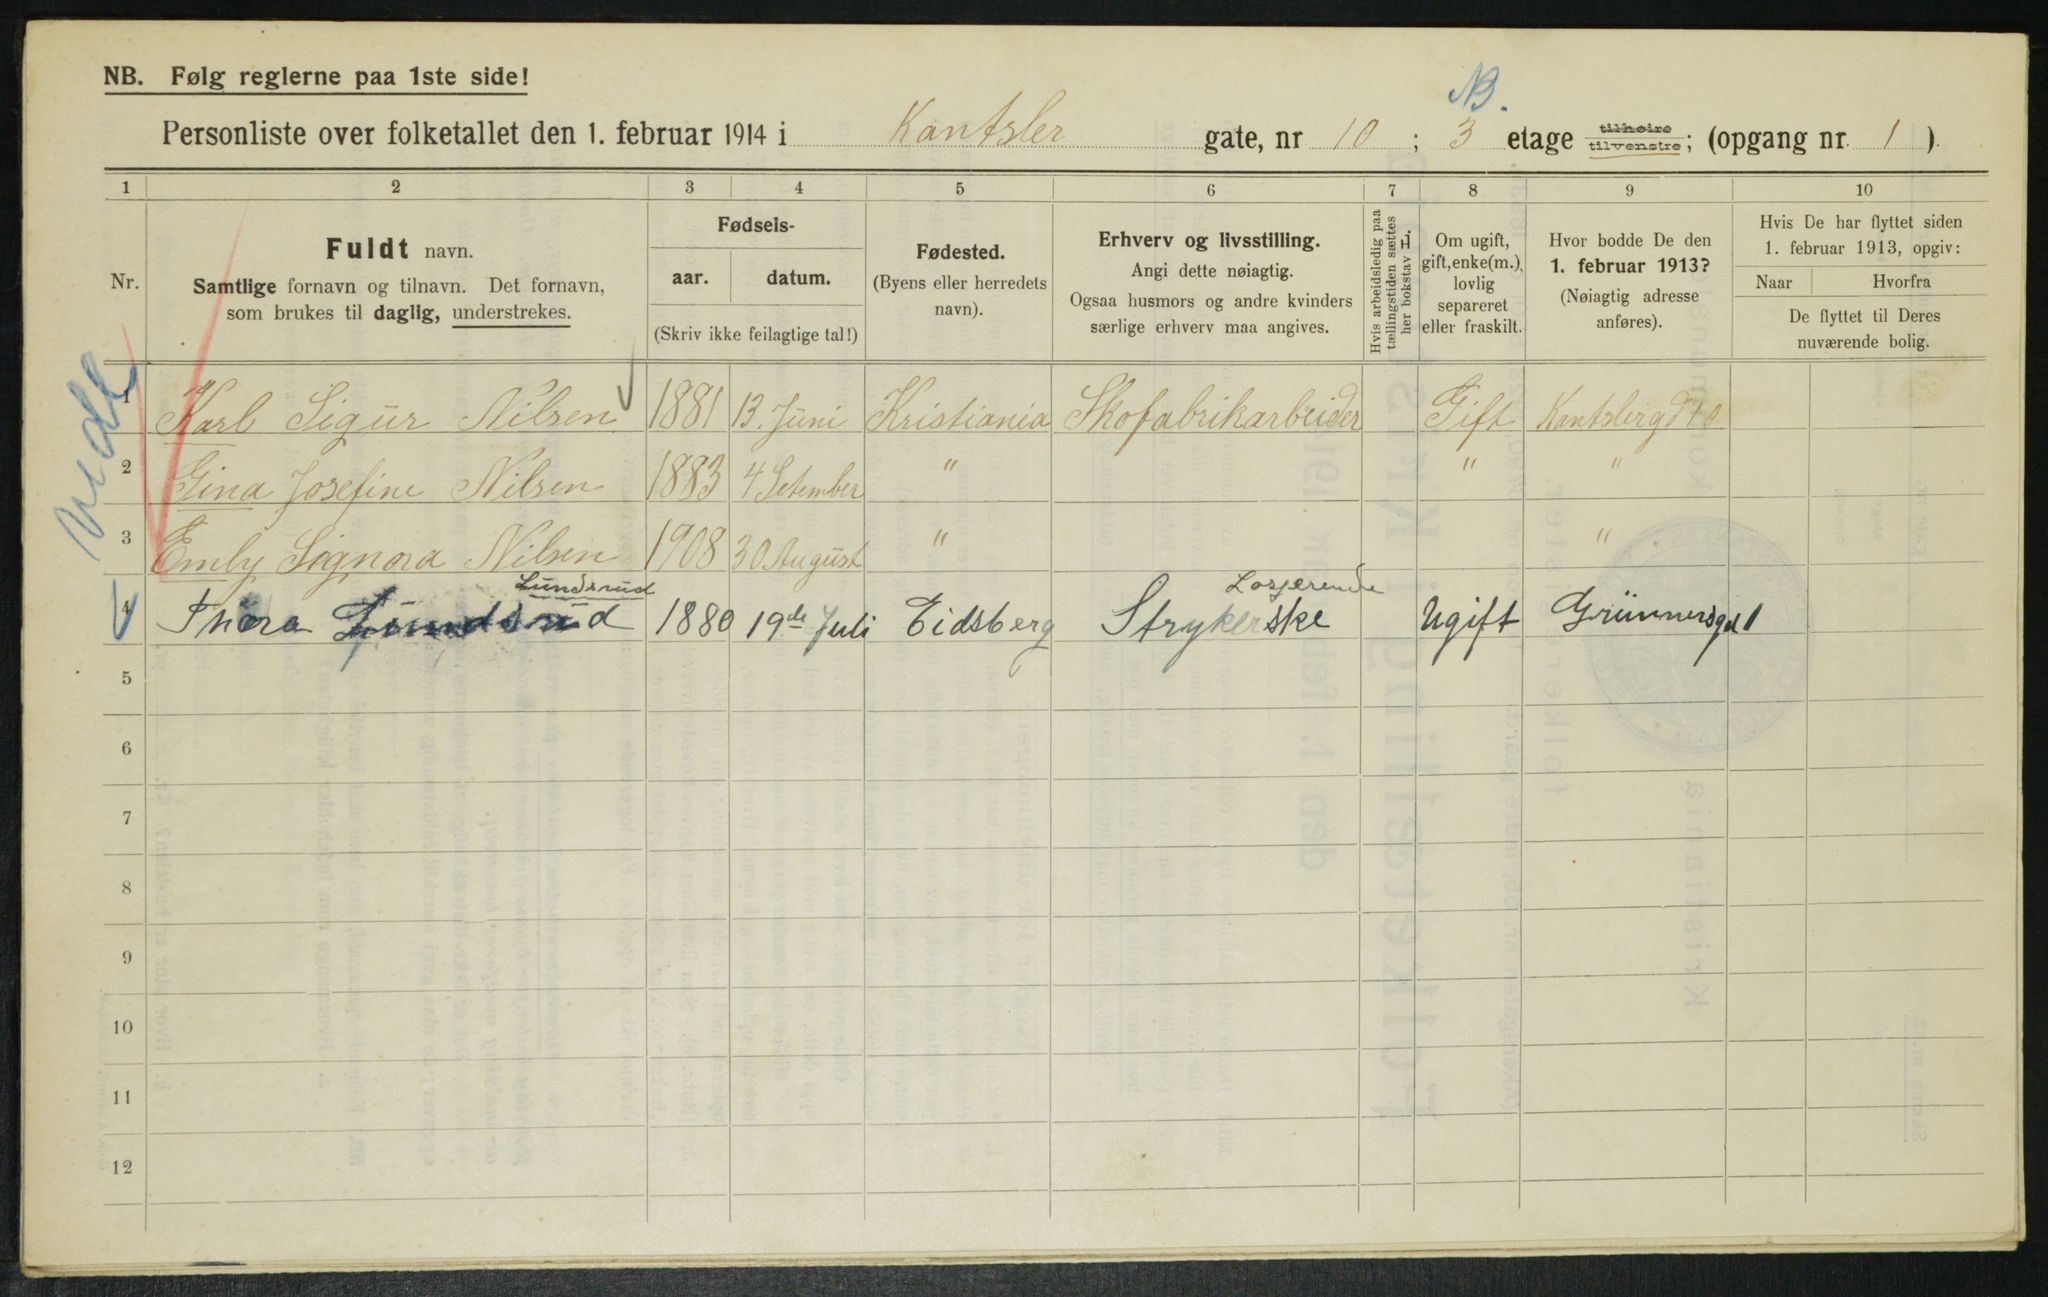 NB. Følg reglerne paa 1ste side!
NB.
Personliste over folketallet den 1. februar 1914 i Kantsler gate, nr 10 ; 3 etage tilhøire tilvenstre; (opgang nr. 1 ).
1 2 3 4 5 6 7 8 9 10
Nr.
Fuldt navn.
Samtlige fornavn og tilnavn. Det fornavn,
som brukes til daglig, understrekes.
Fødsels-
aar. datum.
(Skriv ikke feilagtige tal!)
Fødested.
(Byens eller herredets
navn).
Erhverv og livsstilling.
Angi dette nøiagtig.
Ogsaa husmors og andre kvinders
særlige erhverv maa angives.
Hvis arbeidsledig paa
tællingstiden sættes
her bokstav L.
Om ugift,
gift, enke(m.),
lovlig
separeret
eller fraskilt.
Hvor bodde De den
1. februar 1913?
(Nøiagtig adresse
anføres).
Hvis De har flyttet siden
1. februar 1913, opgiv:
Naar Hvorfra
De flyttet til Deres
nuværende bolig.
1 Karl Sigur Nilsen 1881 13. Juni Kristiania Skofabrikarbeider Gift Kantslergd 10
2 Gina Josefine Nilsen 1883 4 Setember " " "
3 Emly Signora Nilsen 1908 30 August " "
Lundsrud Losjerende
4 Thora Lundsrud 1880 19de Juli Eidsberg Strykerske Ugift Grünnersgd 1
5
6
7
8
9
10
11
12